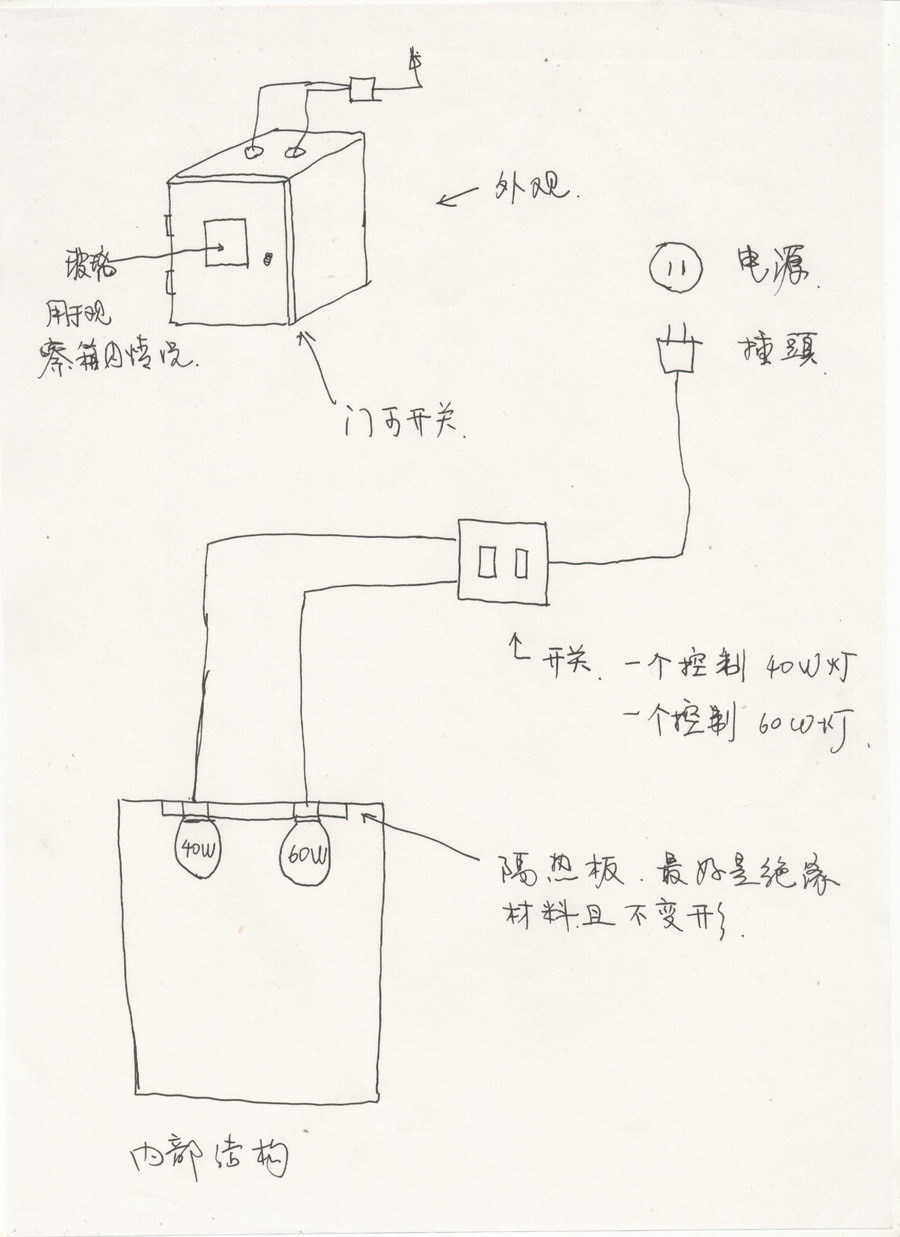 外观.
玻璃
用于观
察箱内情况.
门可开关.
电源.
插頭.
开关. 一个控制 40W灯
一个控制 60W灯.
40W
60W
隔热板. 最好是绝缘
材料.且不变形.
内部结构